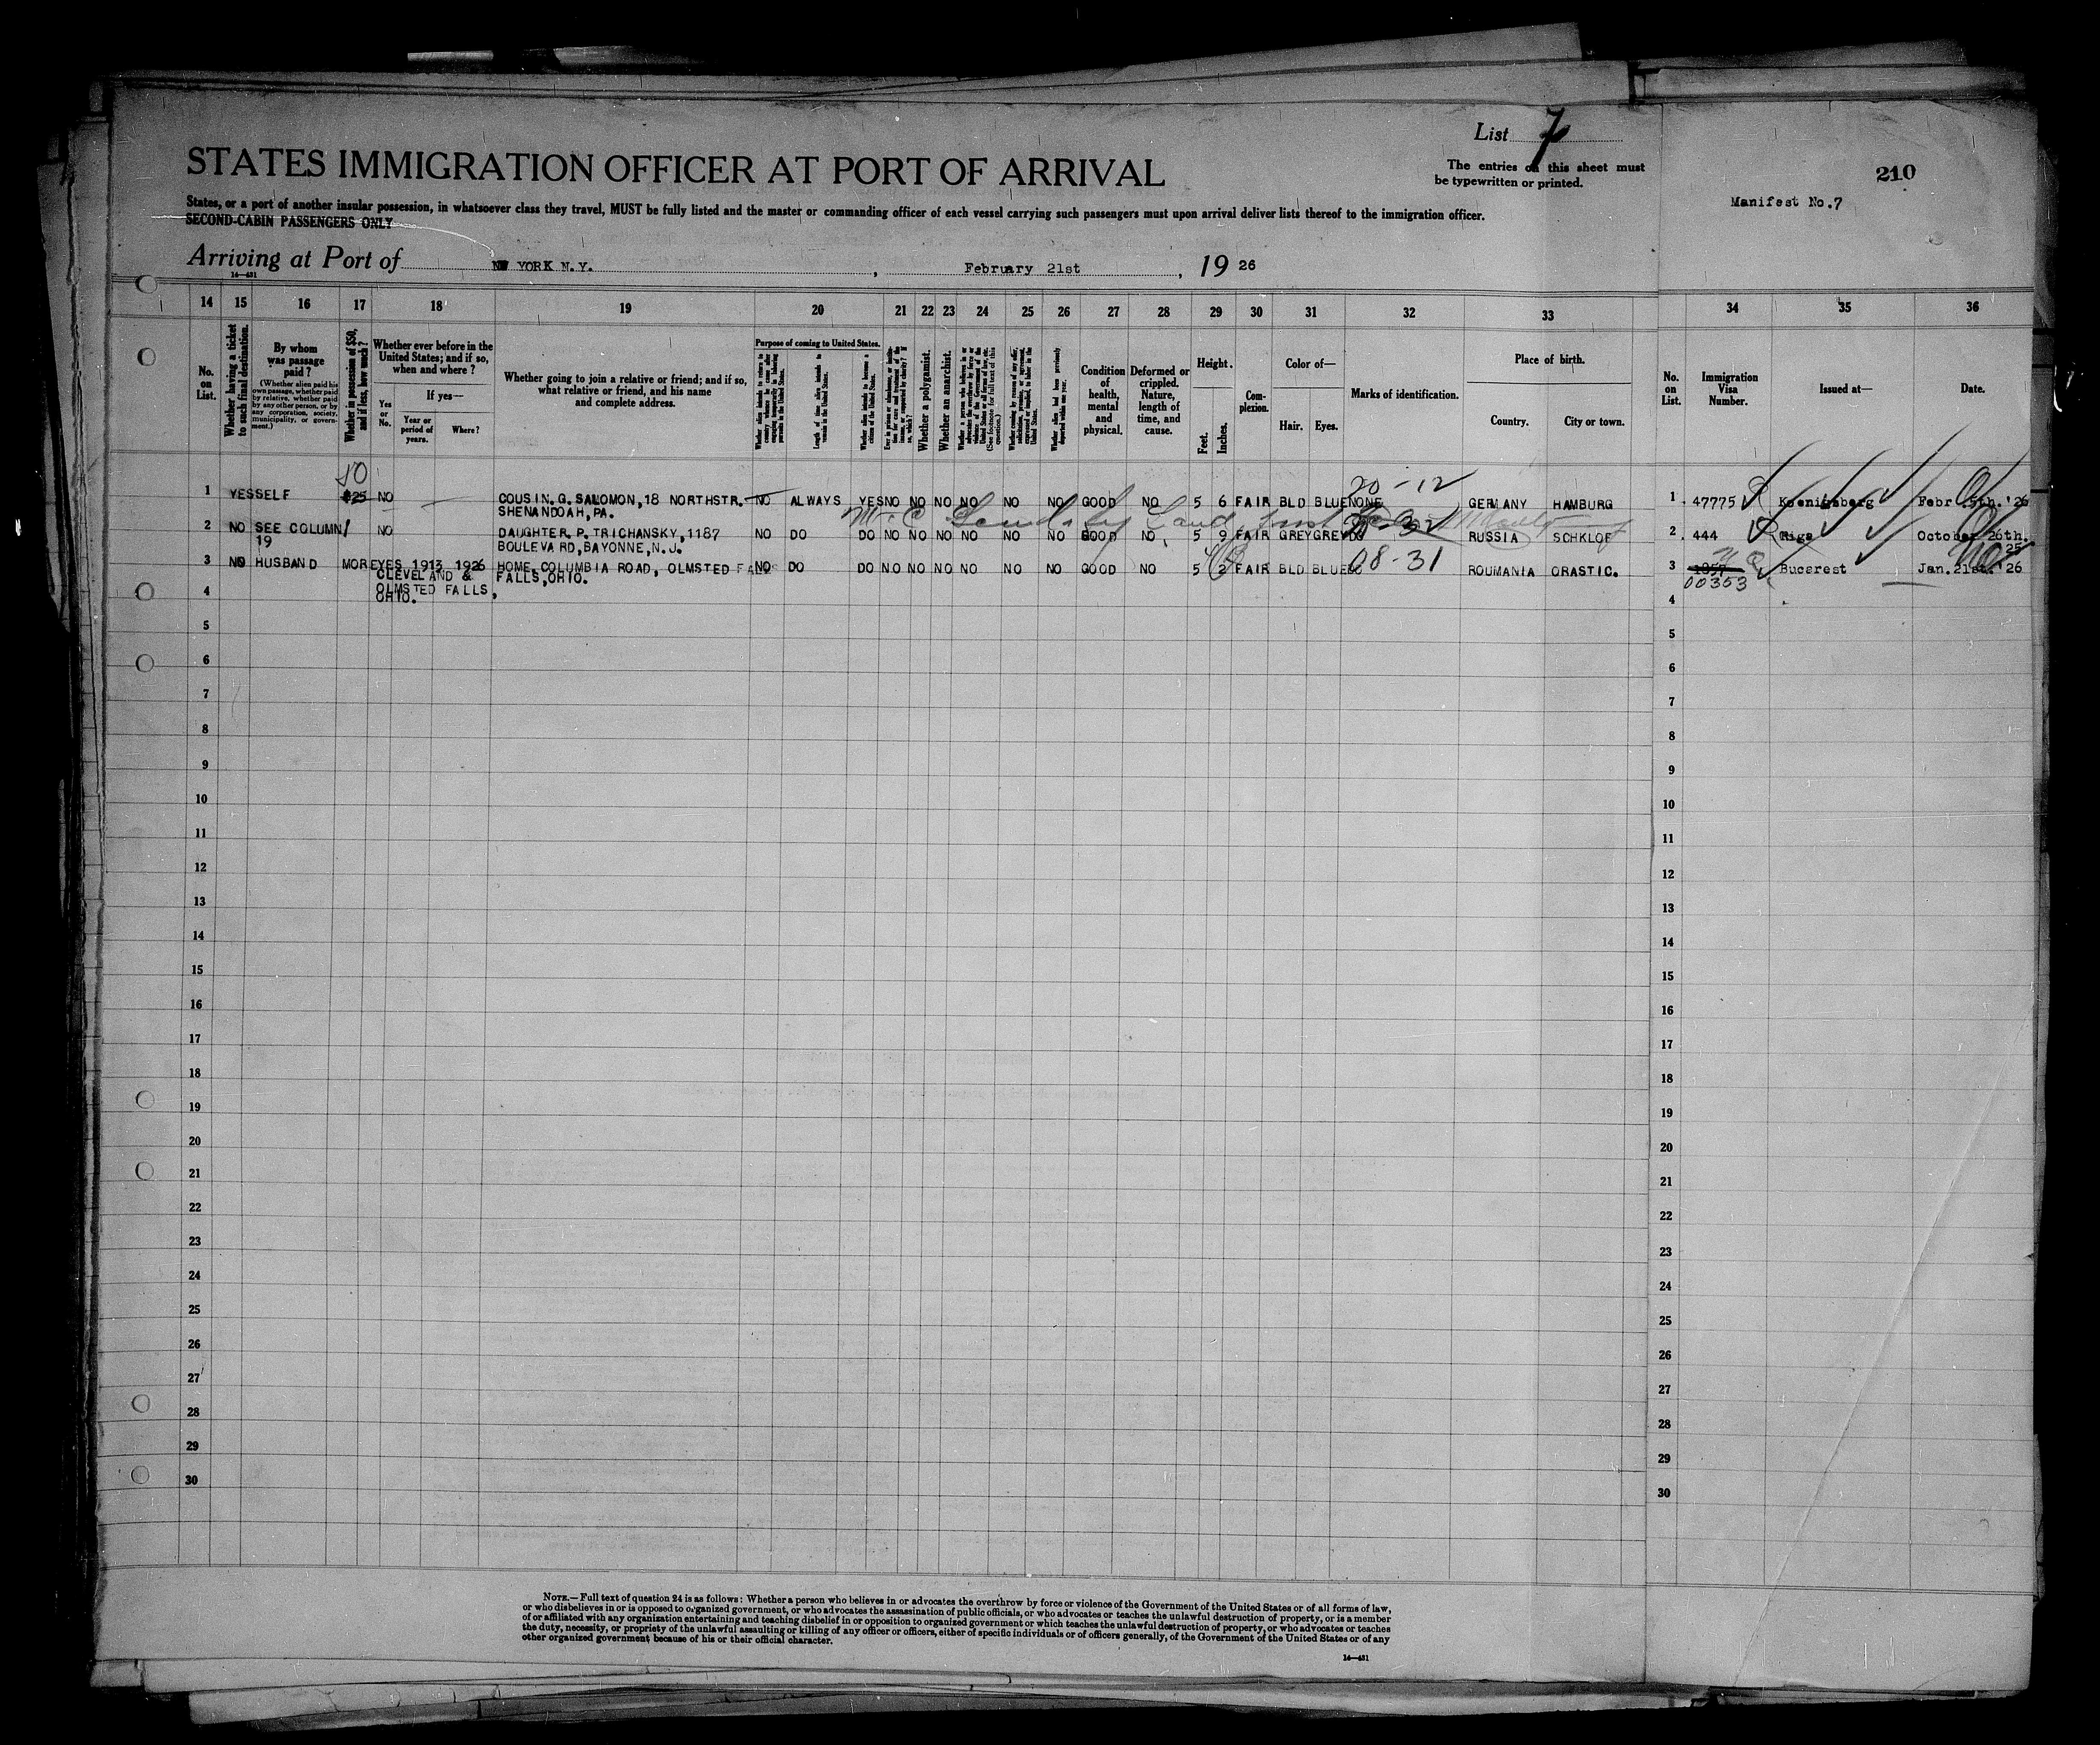 List 7
The entries on this sheet must
be typewritten or printed.
210
Manifest No.7
STATES IMMIGRATION OFFICER AT PORT OF ARRIVAL
States, or a port of another insular possession, in whatsoever class they travel, MUST be fully listed and the master or commanding officer of each vessel carrying such passengers must upon arrival deliver lists thereof to the immigration officer.
SECOND-CABIN PASSENGERS ONLY
Arriving at Port of NEW YORK N.Y. , February 21st , 19 26
14—431
14 15 16 17 18 19 20 21 22 23 24 25 26 27 28 29 30 31 32 33 34 35 36
No. on List.
Whether having a ticket to such final destination.
By whom was passage paid?
(Whether alien paid his own passage, whether paid by relative, whether paid by any other person, or by any corporation, society, municipality, or government.)
Whether in possession of $50, and if less, how much?
Whether ever before in the United States; and if so, when and where?
If yes—
Yes or No.
Year or period of years.
Where?
Whether going to join a relative or friend; and if so, what relative or friend, and his name and complete address.
Purpose of coming to United States.
Length of time alien intends to remain in the United States.
Whether alien intends to become a citizen of the United States.
Whether a polygamist.
Whether an anarchist.
Condition of health, mental and physical.
Deformed or crippled. Nature, length of time, and cause.
Height.
Feet. Inches.
Complexion.
Color of—
Hair. Eyes.
Marks of identification.
Place of birth.
Country. City or town.
No. on List.
Immigration Visa Number.
Issued at—
Date.
50
20-12
1 YES SELF $25 NO COUSIN, G. SALOMON, 18 NORTHSTR. NO ALWAYS YES NO NO NO NO NO NO GOOD NO 5 6 FAIR BLD BLUE NONE GERMANY HAMBURG 1 47775 Koenigsberg Febr 5th. '26
SHENANDOAH, PA.
2 NO SEE COLUMN NO DAUGHTER P. TRICHANSKY, 1187 NO DO DO NO NO NO NO NO NO GOOD NO 5 9 FAIR GREY GREY DO RUSSIA SCHKLOF 2 444 Riga October 26th.
19 BOULEVARD, BAYONNE, N.J. 25
3 NO HUSBAND MORE YES 1913 1926 HOME, COLUMBIA ROAD, OLMSTED FALLS NO DO DO NO NO NO NO NO NO GOOD NO 5 2 FAIR BLD BLUE DO 08-31 ROUMANIA ORASTIC. 3 Bucarest Jan. 21st. '26
CLEVELAND & FALLS, OHIO.
OLMSTED FALLS,
OHIO.
00353
4 4
5 5
6 6
7 7
8 8
9 9
10 10
11 11
12 12
13 13
14 14
15 15
16 16
17 17
18 18
19 19
20 20
21 21
22 22
23 23
24 24
25 25
26 26
27 27
28 28
29 29
30 30
NOTE.—Full text of question 24 is as follows: Whether a person who believes in or advocates the overthrow by force or violence of the Government of the United States or of all forms of law,
or who disbelieves in or is opposed to organized government, or who advocates the assassination of public officials, or who advocates or teaches the unlawful destruction of property, or is a member
of or affiliated with any organization entertaining and teaching disbelief in or opposition to organized government or which teaches the unlawful destruction of property, or who advocates or teaches
the duty, necessity, or propriety of the unlawful assaulting or killing of any officer or officers, either of specific individuals or of officers generally, of the Government of the United States or of any
other organized government because of his or their official character.
14—431